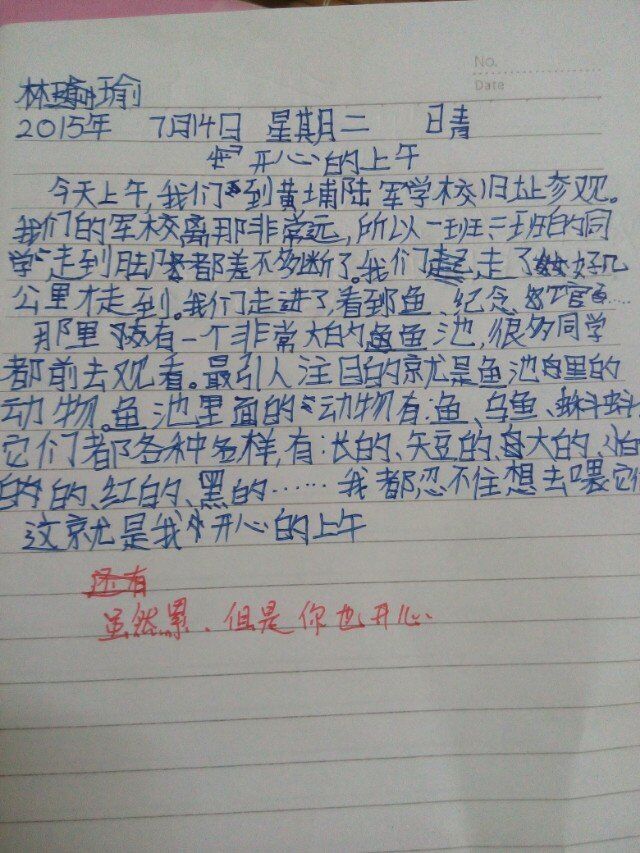 No.
Date
林瑜
2015年 7月14日 星期二 日青
开心的上午
今天上午,我们到黄埔陆军学校旧址参观。
我们的军校离那非常远,所以一班二班的同
学走到脚都差不多断了。我们走了好几
公里才走到。我们走进了,看到鱼、纪念、官……
那里有一个非常大的鱼池,很多同学
都前去观看。最引人注目的就是鱼池里的
动物。鱼池里面的动物有:鱼、乌鱼、蝌蚪
它们都各种各样,有:长的、矢豆的、大的、小白
的、红的、黑的……我都忍不住想去喂它们
这就是我开心的上午
虽然累、但是你也开心